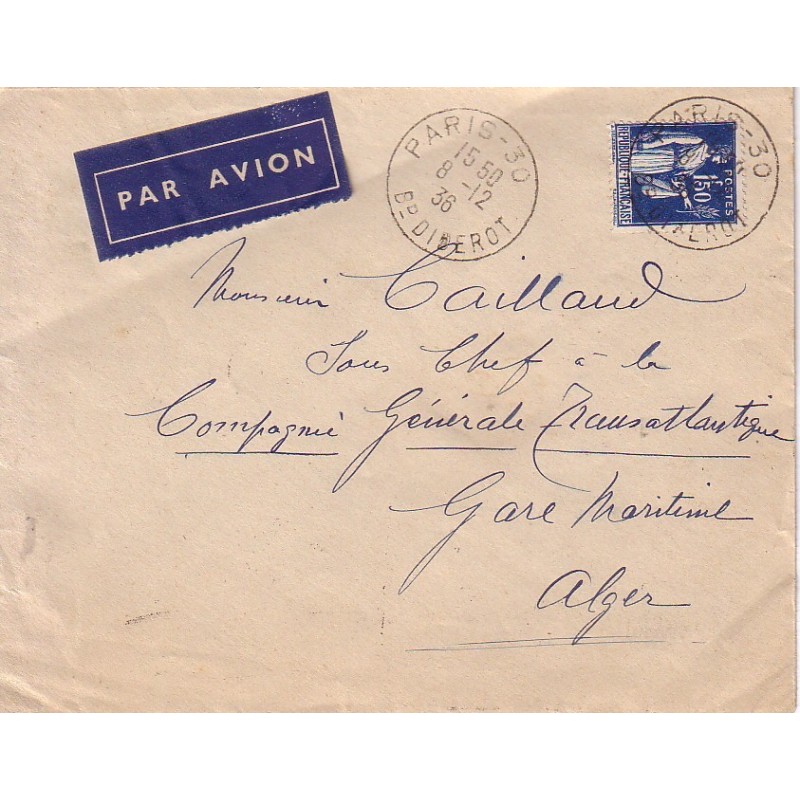 PAR AVION
PARIS-30
15 50
8 -12
36
Bᴅ DIDEROT
PARIS-30
REPUBLIQUE FRANÇAISE
POSTES
1f50
Monsieur Caillaud
Sous Chef à la
Compagnie Générale Transatlantique
Gare Maritime
Alger